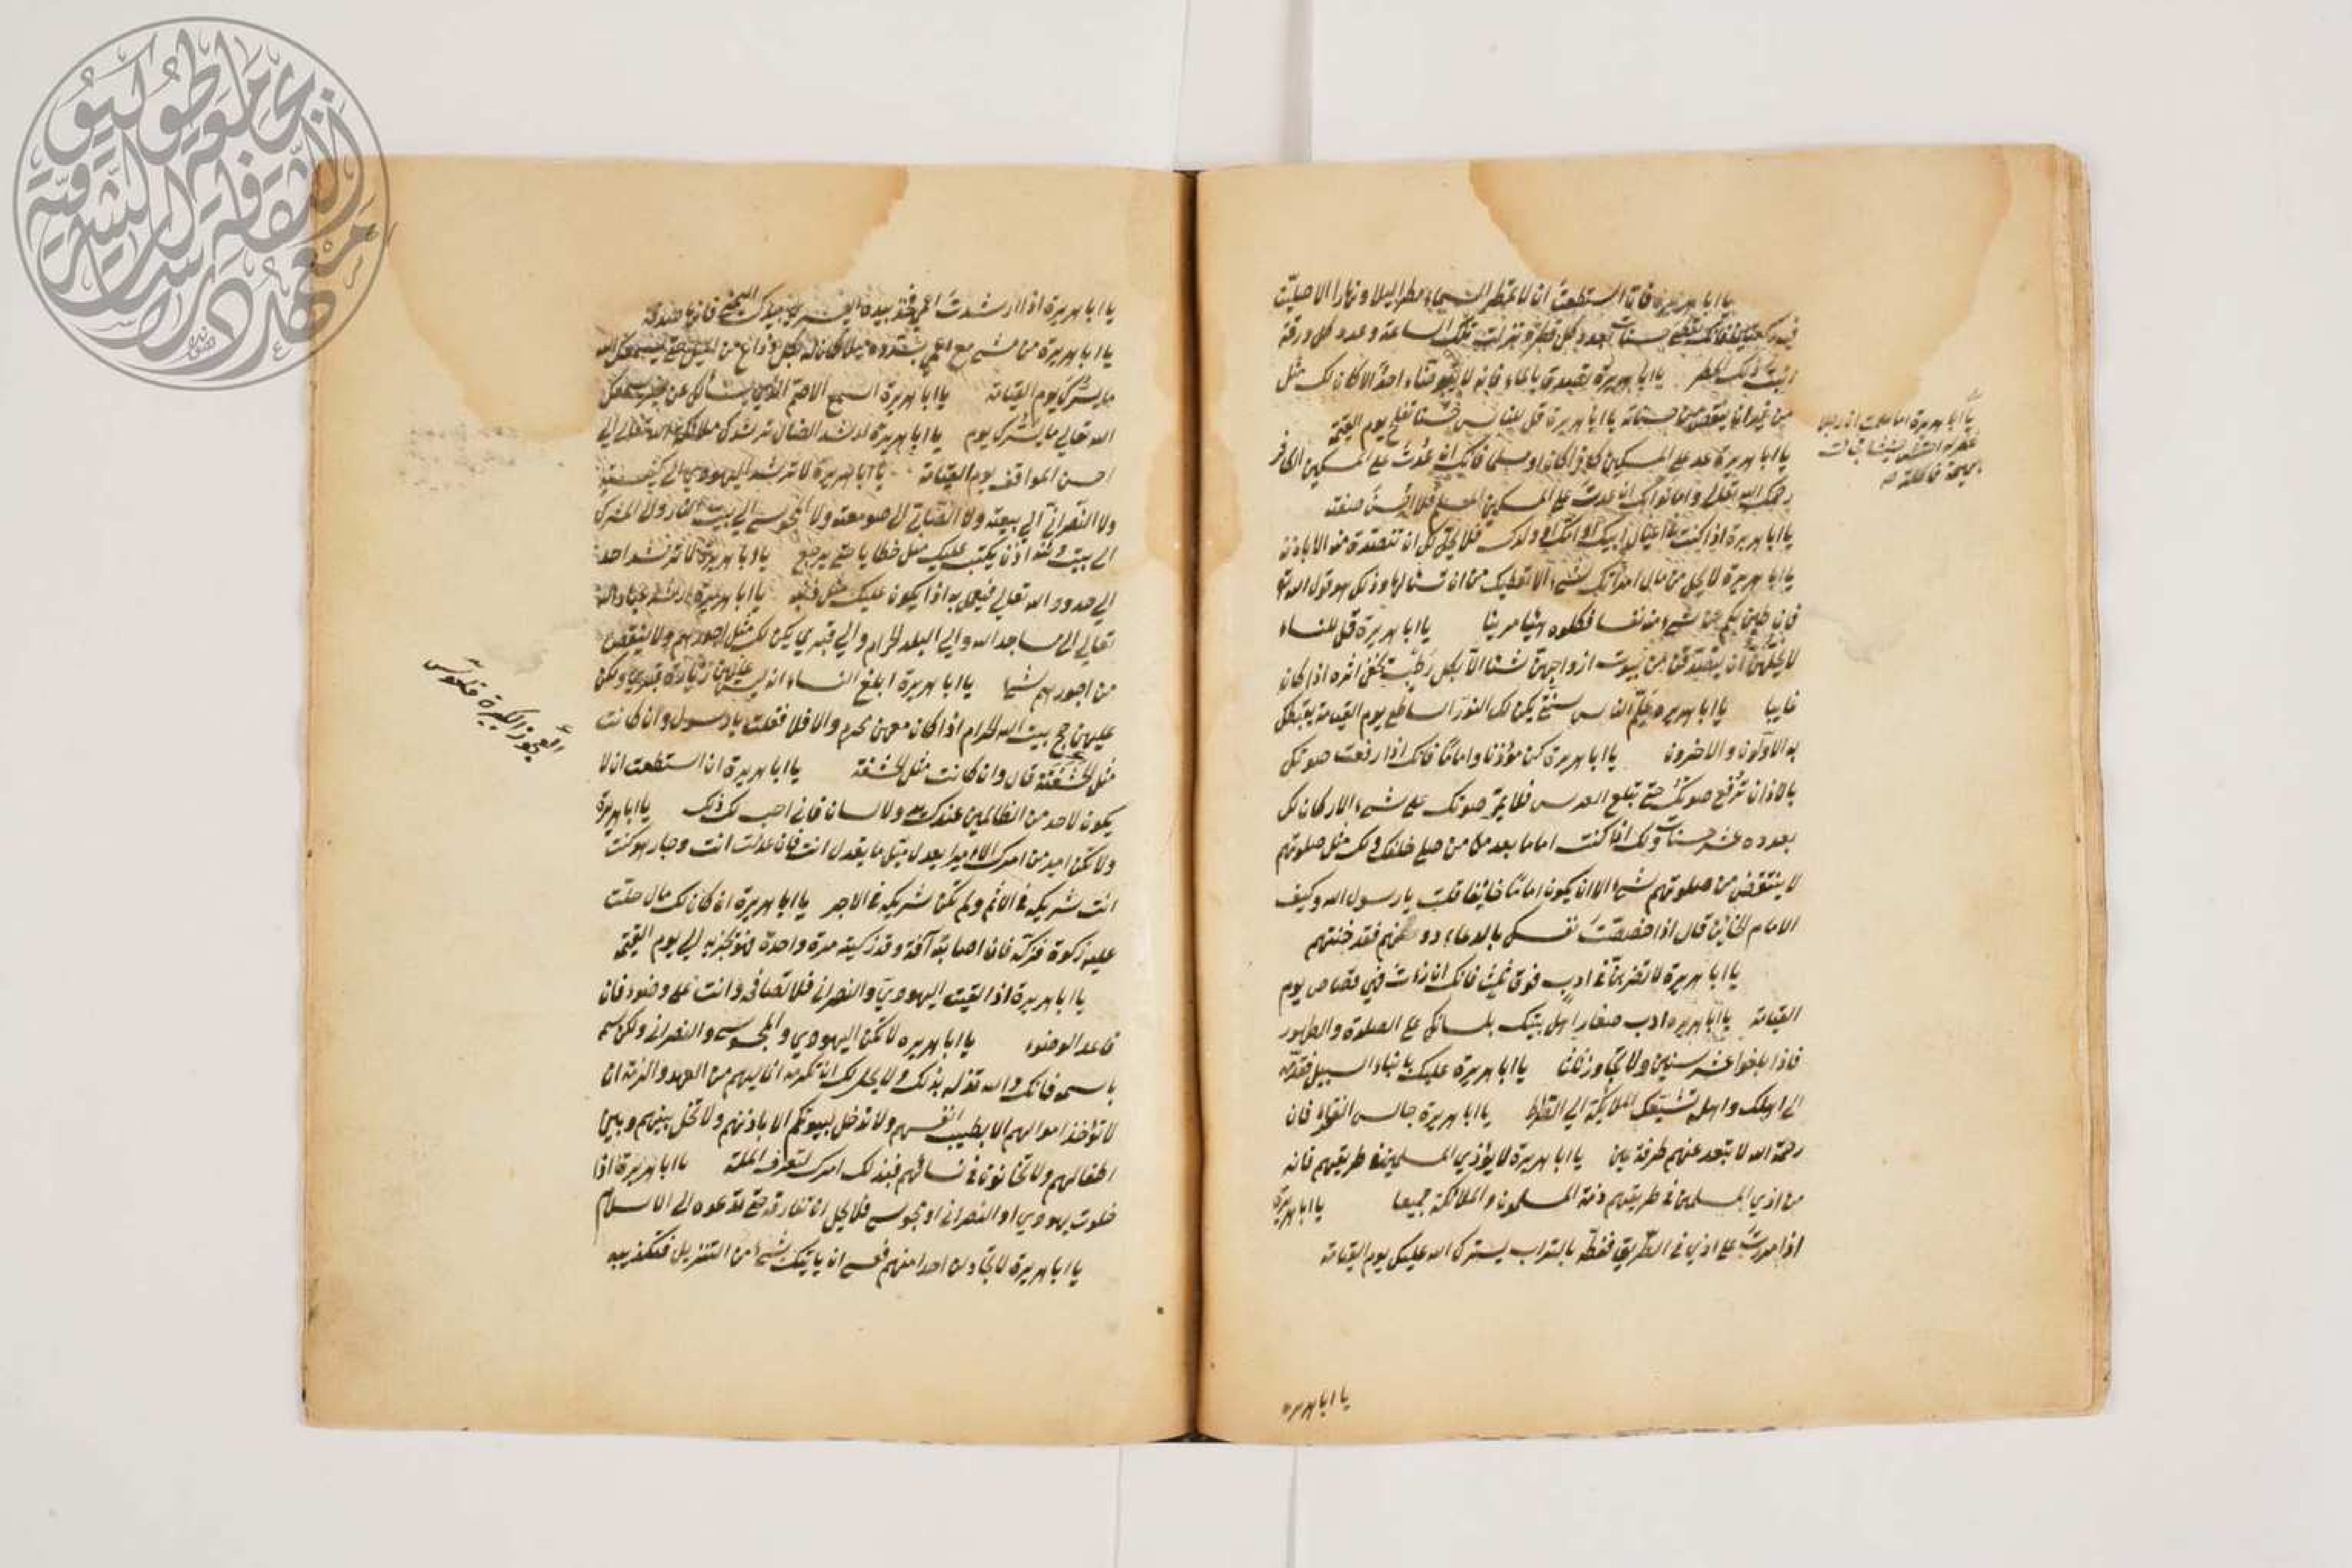 يا ابا هريرة فان استطعت ان لا تمطر السماء مطرا ليلا ونهارا الا صليت
فيه ركعتين فانك تعطى حسنات بعدد كل قطرة نزلت تلك الساعة وعدد كل ورقة
انبتت ذلك المطر يا ابا هريرة تصدق بالماء فانه لا احد الا كان لك مثل
من غير ان ينقص من حسناته يا ابا هريرة قل للناس حسنا تفلح يوم القيمة
يا ابا هريرة عد على المسكين كافرا كان او مسلما فانك ان عدت على المسكين الكافر
رحمك الله تعالى واما ثوابك ان عدت على المسكين المسلم فلا صفته
يا ابا هريرة اذا كنت في عيال ابيك او امك او ولدك فلا يحل لك ان تتصدق منه الا باذن
يا ابا هريرة لا يحل من مال امراتك شيء الا تعطيك من ان تسئالها وذلك هو قول الله تع
فان طبن لكم عن شيء منه نفسا فكلوه هنيا مريئا يا ابا هريرة قل للنساء
لا يحل لهن ان يتصدقن من بيوت ازواجهن شئا الا بكل رطب يخفن اثره اذا كان
غايبا يا ابا هريرة علم الناس سنتي يكن لك النور الساطع يوم القيامة يغبطك
به الاولون والاخرون يا ابا هريرة كن مؤذنا واماما فانك اذا رفعت صوتك
بالاذان ترفع صوتك حتى تبلغ العرس فلا يمر صوتك على شيء الا كان لك
بعدده عشر حسنات ولك اذا كنت اماما بعدد من صلى خلفك ولك مثل صلوتهم
لا ينتقص من صلوتهم شيء الا ان يكون اماما خائنا قلت يا رسول الله وكيف
الامام الخائن قال اذا خصصت نفسك بالدعاء دونهم فقد خنتهم
يا ابا هريرة لا تضربن في ادب فوق ثلث فانك ان زدت فهي قصاص يوم
القيامة يا ابا هريرة ادب صغار اهل بيتك بلسانك على الصلوة والطهور
فاذا بلغوا عشر سنين ولا تجاوز ثلثا يا ابا هريرة عليك بابناء السبيل فقدمه
الى اهلك واهله تشيعك الملائكة الى الصراط يا ابا هريرة جالس الفقراء فان
رحمة الله لا تبعد عنهم طرفة عين يا ابا هريرة لا يؤذي المسلمين في طريقهم فانه
من اذى المسلمين في طريقهم ذمه المسلمون والملائكة جميعا يا ابا هريرة
اذا مررت على اذي في الطريق فغطه بالتراب يستر الله عليك يوم القيامة
يا ابا هريرة
يا ابا هريرة اما علمت ان رجلا
بهيمة فاكلته
يا ابا هريرة اذا ارشدت اعمى فخذ بيده اليسرى بيدك اليمنى فانها صدقة
يا ابا هريرة من مشى مع اعمى ميلا كان له بكل ذراع من الميل
ما يسرك يوم القيامة يا ابا هريرة اسمع الاصم الذي يسئالك عن خير يسمعك
الله تعالى ما يسرك يوم يا ابا هريرة ارشد الضال ترشدك ملائكة الله تعالى الى
احسن المواقف يوم القيامة يا ابا هريرة لا ترشد اليهودي الى كنيسته
ولا النصراني الى بيعته ولا الصابئ الى صومعته ولا المجوسي الى بيت النار ولا المشرك
الى بيت وثنه اذن يكتب عليك مثل خطاياه حتى يرجع يا ابا هريرة لا ترشد احدا
الى حدود الله تعالى فيعمل به اذا يكون عليك مثل ذنبه يا ابا هريرة ارشد عباد الله
تعالى الى مساجد الله والى البلد الحرام والى قبري يكن لك مثل اجورهم ولا ينقص
من اجورهم شيا يا ابا هريرة ابلغ النساء انه ليس عليهن زيارة قبري ولكن
عليهن حج بيت الله الحرام اذا كان معهن محرم والا فلا فقلت يا رسول وان كانت
مثل الحشفة قال وان كانت مثل الحشفة يا ابا هريرة ان استطعت ان لا
يكون لاحد من الظالمين عندك يد ولا لسان فاني احب لك ذلك يا ابا هريرة
ولا تكن امير من امرك الا اميرا يعدل مثل ما يعدل انت فان عدلت انت وجار هو كنت
انت شريكه في الاثم ولم تكن شريكه في الاجر يا ابا هريرة ان كان لك مال حلت
عليه زكوة فزكه فان اصابته آفة وقد زكيته مرة واحدة فهو تجزيه الى يوم القيمة
يا ابا هريرة اذا لقيت اليهودي والنصراني فلا تصافح وانت على وضوء فان
فاعد الوضوء يا ابا هريرة لا تكن اليهودي والمجوسي والنصراني ولكن سم
باسمه فانك والله تذله بذلك ولا يحل لك ان تكرمه انما لهم من العهد والذمة ان
لا تؤخذ اموالهم الا بطيب انفسهم ولا تدخل بيوتكم الا باذنهم ولا تخل بينهم وبين
اطفالهم ولا تخانون في نسائهم فبذلك امرك لتعرف الملة يا ابا هريرة اذا
خلوت يهودي او النصراني او مجوسي فلا يحل ان تفارقه حتى تدعوه الى الاسلام
يا ابا هريرة لا تجادلن احدا منهم فعسى ان ياتيك بشيء من التنزيل فتكذبه
العجوز الكبيرة